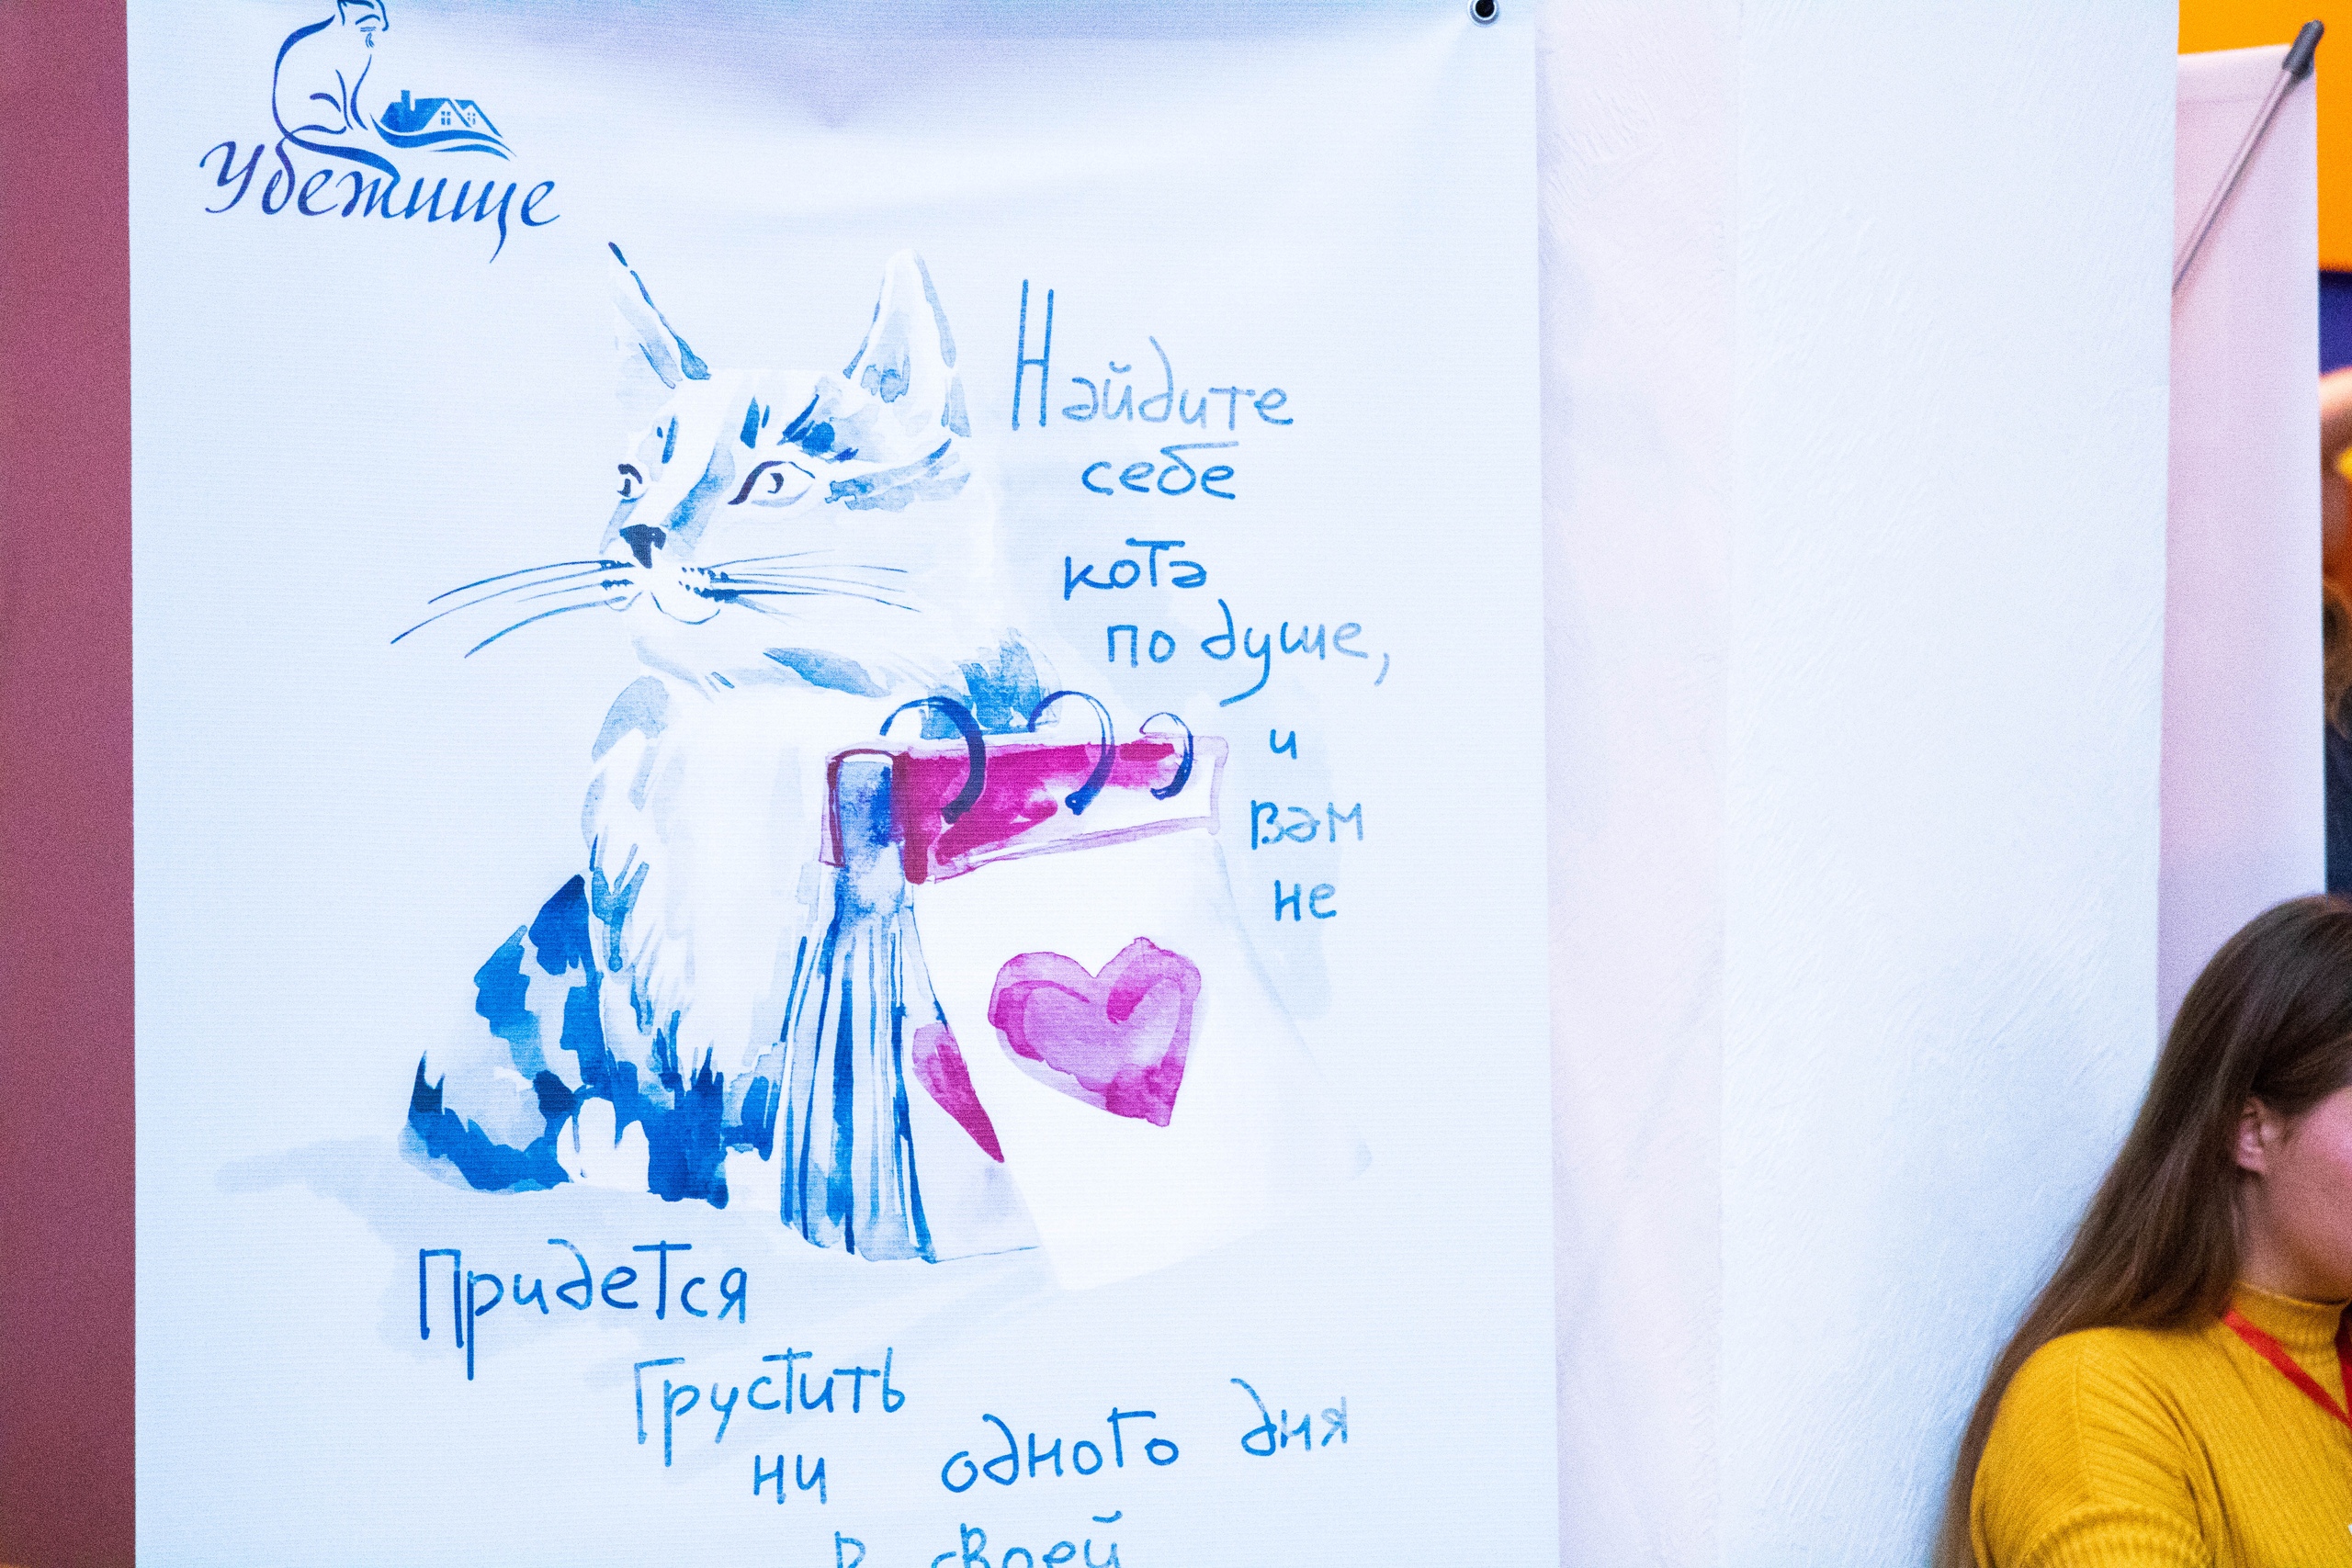 Убежище
Найдите
себе
кота
по душе,
и
вам
не
Придется
Грустить
ни одного дня
в своей